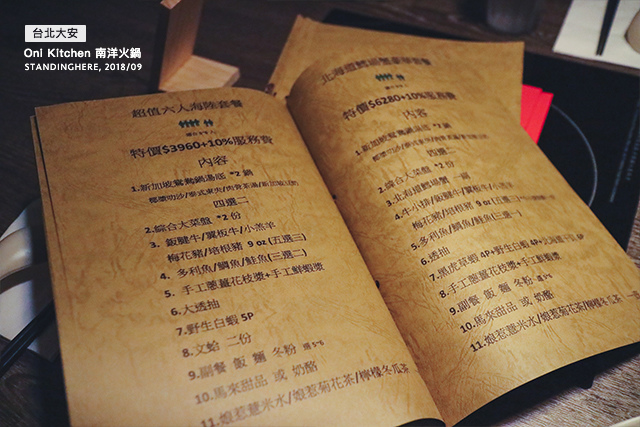 台北大安
Oni Kitchen 南洋火鍋
STANDINGHERE, 2018/09
超值六人海陸套餐
特價$3960+10%服務費
內容
1.新加坡鴛鴦鍋湯底 *2 鍋
椰漿叻沙/泰式東炎/肉骨茶湯/新加坡
四選二
2.綜合大菜盤 *2 份
3. 骰腱牛/翼板牛/小羔羊
梅花豬/培根豬 9 oz(五選三)
4. 多利魚/鯛魚/鮭魚(三選二)
5. 手工蔥薑花枝漿+手工鮮蝦漿
6.大透抽
7.野生白蝦 5P
8.文蛤 二份
9.副餐 飯 麵 冬粉 週5*6
10.馬來甜品 或 奶酪
11.娘惹薏米水/娘惹菊花茶/檸檬冬瓜茶
北海道鱈場蟹豪華套餐
特價$6280+10%服務費
內容
1.新加坡鴛鴦鍋湯底 *2 鍋
四選二
2.綜合大菜盤 *2 份
3.北海道鱈場蟹 一鍋
4.牛小排/骰腱牛/翼板牛/小羔羊
梅花豬/培根豬 9 oz(五選三)
5.多利魚/鯛魚/鮭魚(三選一)
6.透抽
7.黑虎草蝦 4P+野生白蝦 4P+
8.手工蔥薑花枝漿+手工鮮蝦漿
9.副餐 飯 麵 冬粉 週5*6
10.馬來甜品 或 奶酪
11.娘惹薏米水/娘惹菊花茶/檸檬冬瓜茶